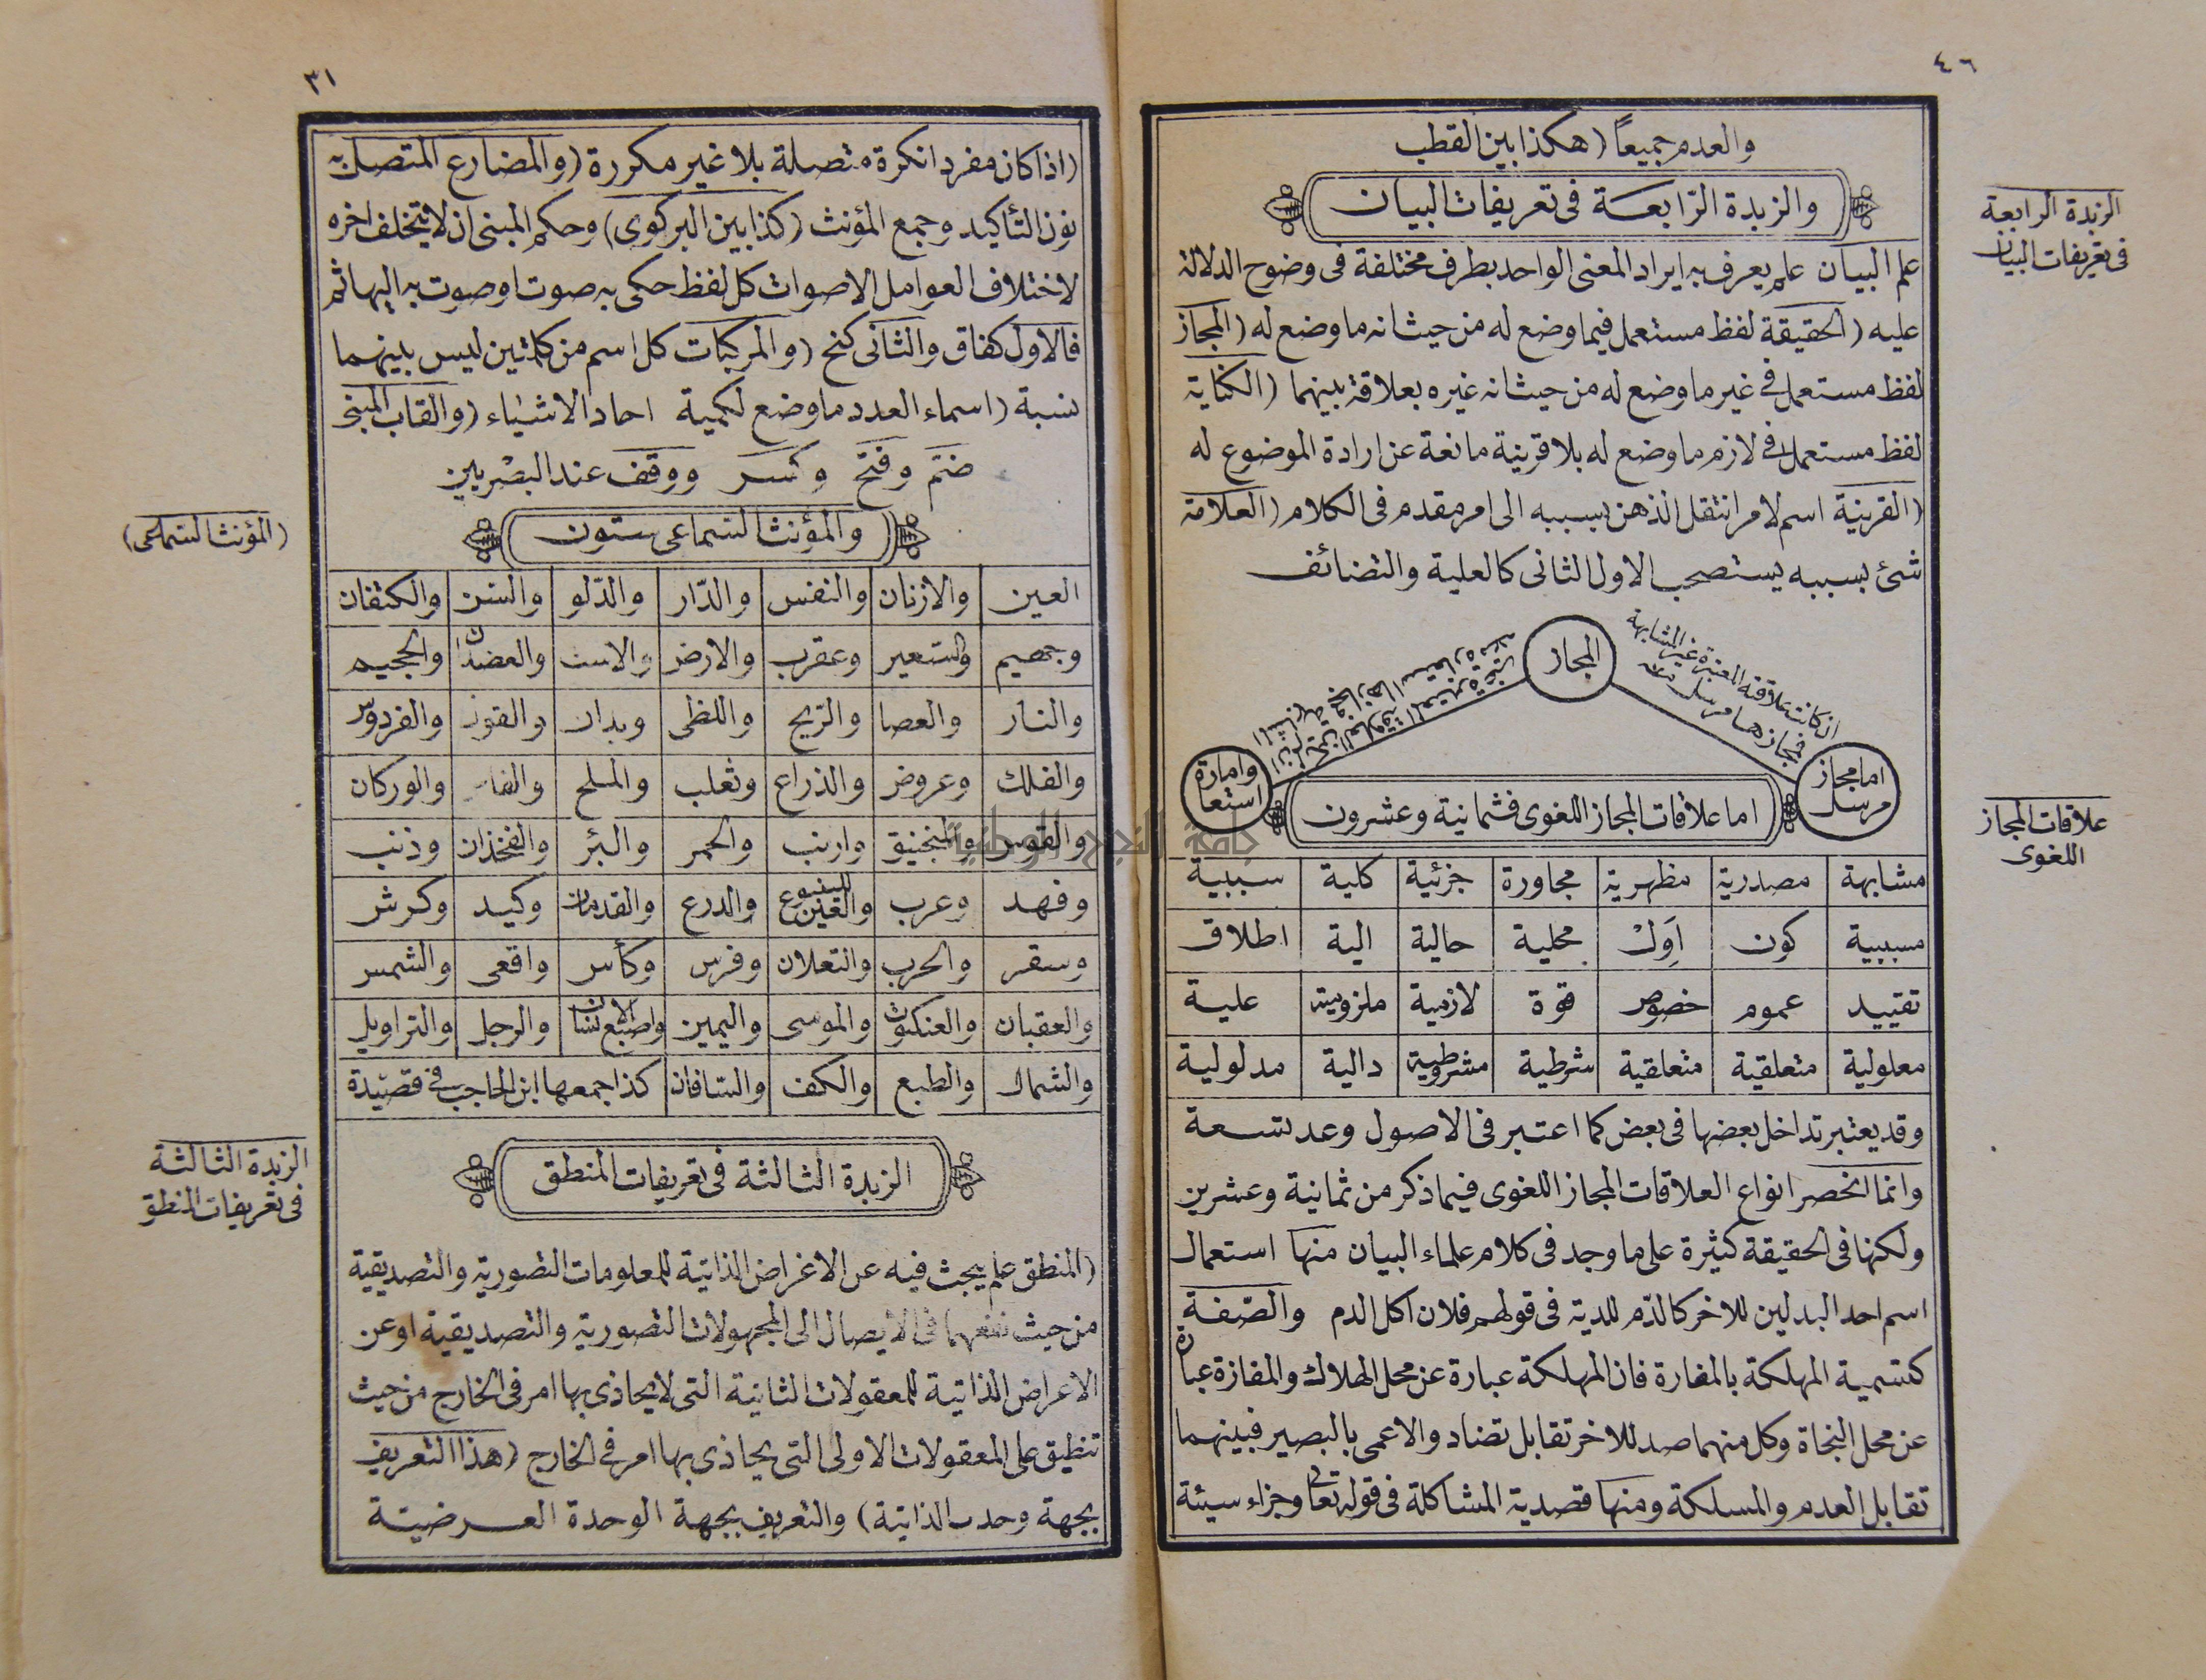 ٤٦
والعدم جميعاً (هكذا بين القطب
والزبدة الرّابعَة فى تعريفات البيان
الزبدة الرابعة
فى تعريفات البيان
علم البيان علم يعرف به ايراد المعنى الواحد بطرف مختلفة فى وضوح الدلالة
عليه (الحقيقة لفظ مستعمل فيما وضع له من حيث انه ما وضع له (المجاز
لفظ مستعمل فى غير ما وضع له من حيث انه غيره بعلاقة بينهما (الكناية
لفظ مستعمل فى لازم ما وضع له بلا قرينة مانعة عن ارادة الموضوع له
(القرينية اسم لامر انتقل الذهن بسببه الى امر مقدم فى الكلام (العلامة
شئ بسببه يستصحب الاول الثانى كالعلية والتضائف
المجاز
ان كانت علاقته المعتبرة غير المشابهة
فمجازها مرسل
اما مجاز
مرسل
وامارة
استعا
اما علاقات المجاز اللغوى فثمانية وعشرون
علاقات المجاز
اللغوى
مشابهة مصدرية مظهرية مجاورة جزئية كلية سببية
مسببية كون اَوِلْ محلية حالية الية اطلاق
تقييد عموم خصوص قوة لازمية ملزومية علية
معلولية متعلقية متعلقية شرطية مشروطية دالية مدلولية
وقد يعتبر تداخل بعضها فى بعض كما اعتبر فى الاصول وعد تسعة
وانما انحصر انواع العلاقات المجاز اللغوى فيما ذكر من ثمانية وعشرين
ولكنها فى الحقيقة كثيرة على ما وجد فى كلام علماء البيان منها استعمال
اسم احد البدلين للاخر كالدّم للدية فى قولهم فلان اكل الدم والصّفة
كتسمية المهلكة بالمفارة فان المهلكة عبارة عن محل الهلاك والمفازة عبارة
عن محل النجاة وكل منهما صد للاخر تقابل تضاد والاعمى بالبصير فبينهما
تقابل العدم والمسلكة ومنها قصدية المشاكلة فى قوله تعالى وجزاء سيئة
٣١
(اذا كان مفردا نكرة متصلة بلا غير مكررة (والمضارع المتصل به
نون التأكيد وجمع المؤنث (كذا بين البركوى) وحكم المبنى ان لا يتخلف اخره
لاختلاف العوامل الاصوات كل لفظ حكى به صوت او صوت به البهائم
فالاول كفاق والثانى كنخ (والمركبات كل اسم من كلمتين ليس بينهما
نسبة (اسماء العدد ما وضع لكمية احاد الاشياء (والقاب المبنى
ضَم وفَتح وكَسر ووقف عند البصْريين
والمؤنث السّماعى ستون
(المؤنث السّماعى)
العين والاذنان والنفس والدّار والدّلو والسّن والكتفان
وجهيم والسّعير وعقرب والارض والاست والعضدان والجحيم
والنار والعصا والرّيح واللظى ويدان والفوز والفردوس
والفلك وعروض والذراع وثعلب والملح والفاس والوركان
والقوس والمنجنيق وارنب والخمر والبئر والفخذان وذنب
وفهد وعرب والعين للينبوع والدرع والقدمان وكيد وكرش
وسقر والحرب والنعلان وفرس وكأس وافعى والشمس
والعقبان والعنكبوت والموسى واليمين واصبع الانسان والرجل والتراويل
والشمال والطبع والكف والساقان كذا جمعها ابن الحاجب فى قصيّدة
الزبدة الثالثة فى تعريفات المنطق
الزبدة الثالثة
فى تعريفات المنطق
(المنطق علم يبحث فيه عن الاغراض الذاتية للمعلومات التصورية والتصديقية
من حيث نفعهما فى الايصال الى المجهولات التصورية والتصديقية او عن
الاعراض الذاتية للمعقولات الثانية التى لا يحاذى بها امر فى الخارج من حيث
تنطبق على المعقولات الاولى التى يحاذى بها امر فى الخارج (هذا التعريف
بجهة وحدت الذاتية) والتعريف بجهة الوحدة العرضيّة
جامعة النجاح الوطنية